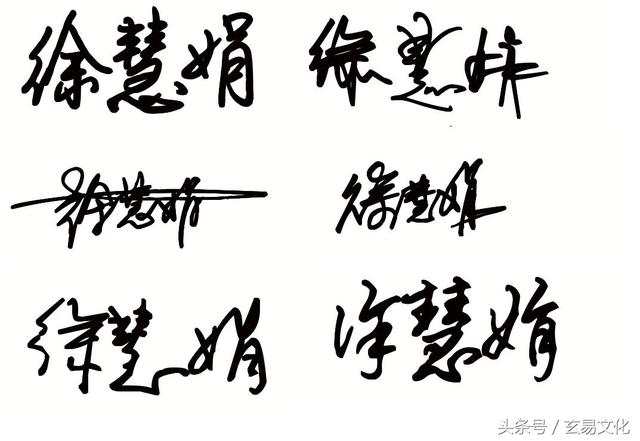 徐慧娟 徐慧娟
徐慧娟 徐慧娟
徐慧娟 徐慧娟
头条号 / 玄易文化